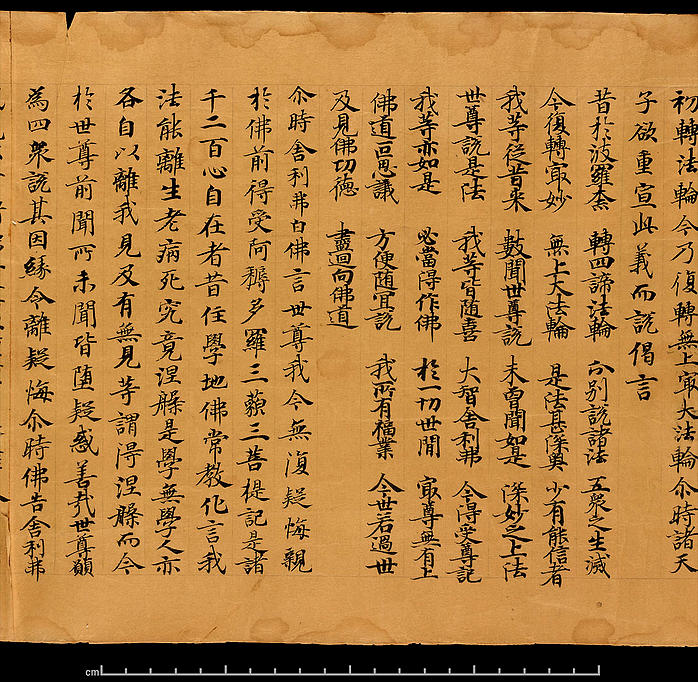 初轉法輪今乃復轉無上寂大法輪尒時諸天
子欲重宣此義而說偈言
昔於波羅柰 轉四諦法輪 分別說諸法 五衆之生滅
今復轉寂妙 無上大法輪 是法甚深奧 少有能信者
我等從昔來 數聞世尊說 未曾聞如是 深妙之上法
世尊說是法 我等皆随喜 大智舍利弗 今得受尊記
我等亦如是 必當得作佛 於一切世間 寂尊無有上
佛道叵思議 方便随宜說 我所有福業 今世若過世
及見佛功德 盡迴向佛道
尒時舍利弗白佛言世尊我今無復疑悔親
於佛前得受阿耨多羅三藐三菩提記是諸
千二百心自在者昔住學地佛常教化言我
法能離生老病死究竟涅槃是學無學人亦
各自以離我見及有無見等謂得涅槃而今
於世尊前聞所未聞皆墮疑惑善哉世尊願
為四衆說其因緣令離疑悔尒時佛告舍利弗